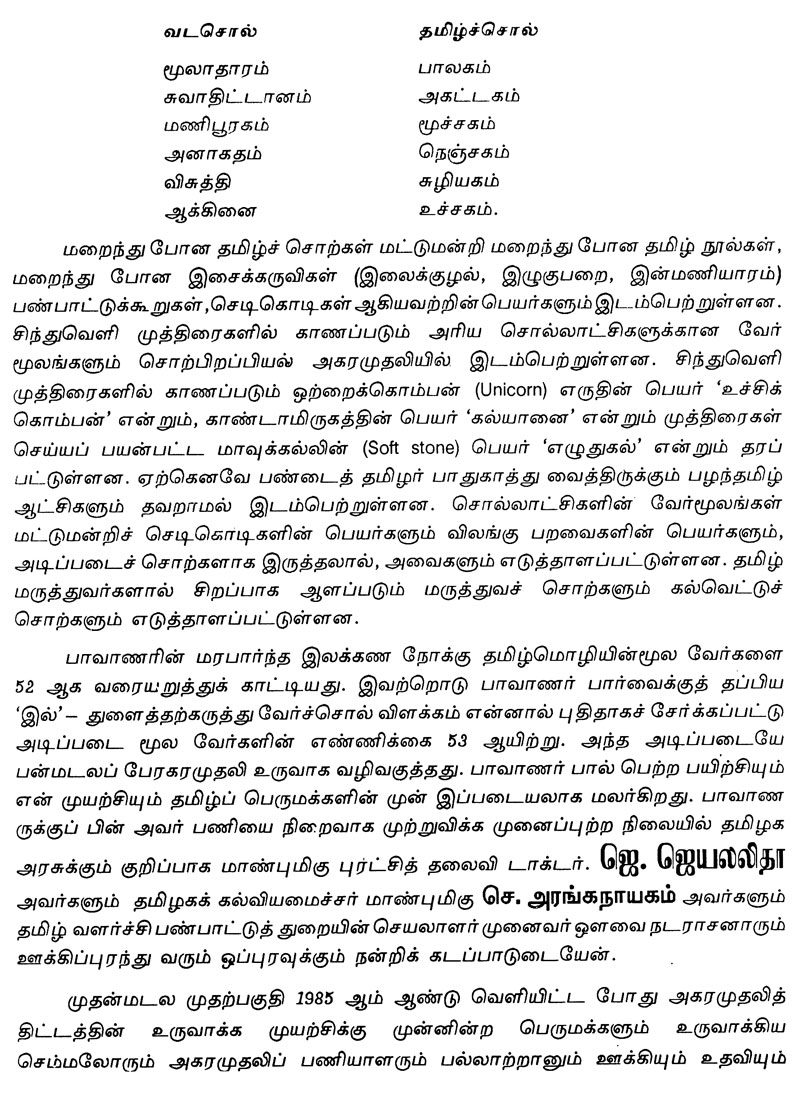 வடசொல் தமிழ்ச்சொல்
மூலாதாரம் பாலகம்
சுவாதிட்டானம் அகட்டகம்
மணிபூரகம் மூச்சகம்
அனாகதம் நெஞ்சகம்
விசுத்தி சுழியகம்
ஆக்கினை உச்சகம்.
மறைந்து போன தமிழ்ச் சொற்கள் மட்டுமன்றி மறைந்து போன தமிழ் நூல்கள்,
மறைந்து போன இசைக்கருவிகள் (இலைக்குழல், இழுகுபறை, இன்மணியாரம்)
பண்பாட்டுக்கூறுகள்,செடிகொடிகள் ஆகியவற்றின் பெயர்களும் இடம்பெற்றுள்ளன.
சிந்துவெளி முத்திரைகளில் காணப்படும் அரிய சொல்லாட்சிகளுக்கான வேர்
மூலங்களும் சொற்பிறப்பியல் அகரமுதலியில் இடம்பெற்றுள்ளன. சிந்துவெளி
முத்திரைகளில் காணப்படும் ஒற்றைக்கொம்பன் (Unicorn) எருதின் பெயர் ‘உச்சிக்
கொம்பன்’ என்றும், காண்டாமிருகத்தின் பெயர் ‘கல்யானை’ என்றும் முத்திரைகள்
செய்யப் பயன்பட்ட மாவுக்கல்லின் (Soft stone) பெயர் ‘எழுதுகல்’ என்றும் தரப்
பட்டுள்ளன. ஏற்கெனவே பண்டைத் தமிழர் பாதுகாத்து வைத்திருக்கும் பழந்தமிழ்
ஆட்சிகளும் தவறாமல் இடம்பெற்றுள்ளன. சொல்லாட்சிகளின் வேர்மூலங்கள்
மட்டுமன்றிச் செடிகொடிகளின் பெயர்களும் விலங்கு பறவைகளின் பெயர்களும்,
அடிப்படைச் சொற்களாக இருத்தலால், அவைகளும் எடுத்தாளப்பட்டுள்ளன. தமிழ்
மருத்துவர்களால் சிறப்பாக ஆளப்படும் மருத்துவச் சொற்களும் கல்வெட்டுச்
சொற்களும் எடுத்தாளப்பட்டுள்ளன.
பாவாணரின் மரபார்ந்த இலக்கண நோக்கு தமிழ்மொழியின்மூல வேர்களை
52 ஆக வரையறுத்துக் காட்டியது. இவற்றொடு பாவாணர் பார்வைக்குத் தப்பிய
‘இல்’ – துளைத்தற்கருத்து வேர்ச்சொல் விளக்கம் என்னால் புதிதாகச் சேர்க்கப்பட்டு
அடிப்படை மூல வேர்களின் எண்ணிக்கை 53 ஆயிற்று. அந்த அடிப்படையே
பன்மடலப் பேரகரமுதலி உருவாக வழிவகுத்தது. பாவாணர் பால் பெற்ற பயிற்சியும்
என் முயற்சியும் தமிழ்ப் பெருமக்களின் முன் இப்படையலாக மலர்கிறது. பாவாண
ருக்குப் பின் அவர் பணியை நிறைவாக முற்றுவிக்க முனைப்புற்ற நிலையில் தமிழக
அரசுக்கும் குறிப்பாக மாண்புமிகு புரட்சித் தலைவி டாக்டர். ஜெ. ஜெயலலிதா
அவர்களும் தமிழகக் கல்வியமைச்சர் மாண்புமிகு செ. அரங்கநாயகம் அவர்களும்
தமிழ் வளர்ச்சி பண்பாட்டுத் துறையின் செயலாளர் முனைவர் ஔவை நடராசனாரும்
ஊக்கிப்புரந்து வரும் ஒப்புரவுக்கும் நன்றிக் கடப்பாடுடையேன்.
முதன்மடல முதற்பகுதி 1985 ஆம் ஆண்டு வெளியிட்ட போது அகரமுதலித்
திட்டத்தின் உருவாக்க முயற்சிக்கு முன்னின்ற பெருமக்களும் உருவாக்கிய
செம்மலோரும் அகரமுதலிப் பணியாளரும் பல்லாற்றானும் ஊக்கியும் உதவியும்